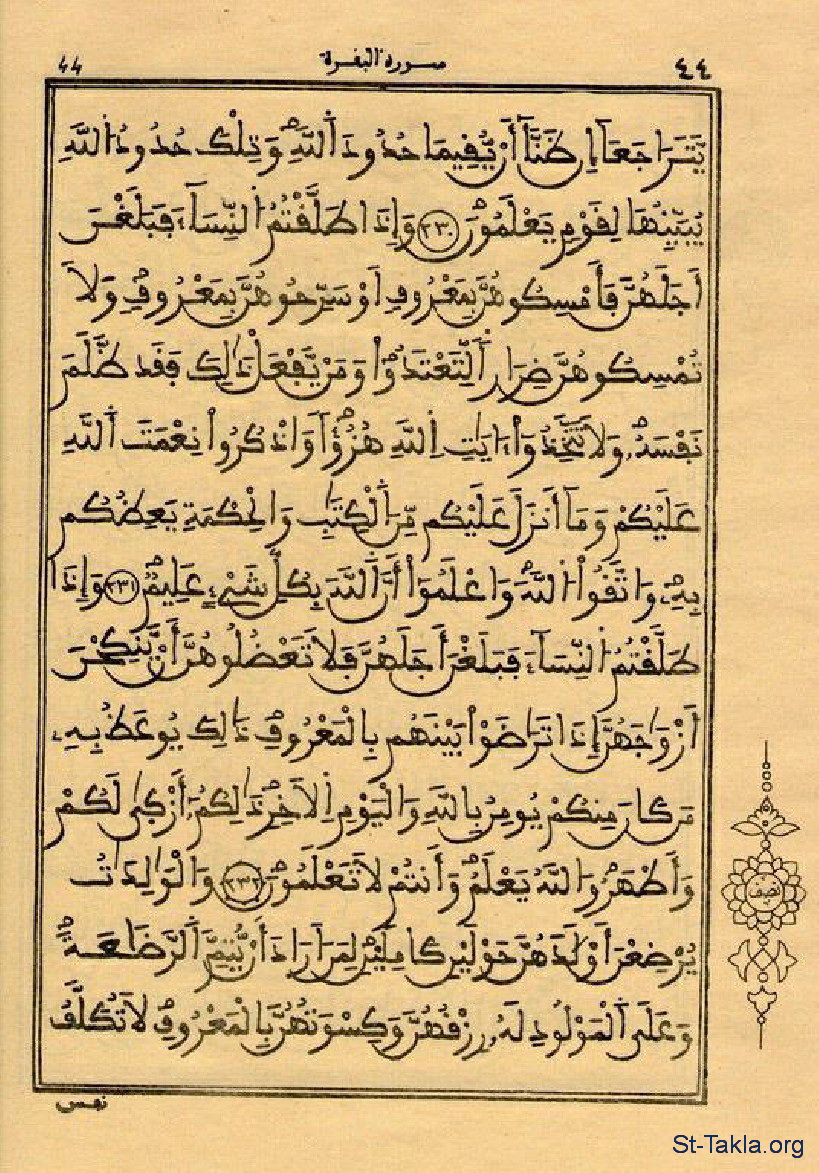 ٤٤ سورة البقرة 44
يَّتَرَاجَعَا إِن ظَنَّا أَنْ يُّقِيمَا حُدُودَ اَللَّهِ وَتِلْكَ حُدُودُ اُللَّهِ
يُبَيِّنُهَا لِقَوْمٍ يَعْلَمُونَ ٢٣٠ وَإِذَا طَلَّقْتُمُ اُلنِّسَآءَ فَبَلَغْنَ
أَجَلَهُنَّ فَأَمْسِكُوهُنَّ بِمَعْرُوفٍ أَوْ سَرِّحُوهُنَّ بِمَعْرُوفٍ وَلاَ
تُمْسِكُوهُنَّ ضِرَاراً لِّتَعْتَدُواْ وَمَنْ يَّفْعَلْ ذَٰلِكَ فَقَد ظَّلَمَ
نَفْسَهُۥ وَلاَ تَتَّخِذُوٓاْ ءَايَٰتِ اِللَّهِ هُزُؤاً وَاذْكُرُواْ نِعْمَتَ اَللَّهِ
عَلَيْكُمْ وَمَآ أَنزَلَ عَلَيْكُم مِّنَ اَلْكِتَٰبِ وَالْحِكْمَةِ يَعِظُكُم
بِهِۦ وَاتَّقُواْ اُللَّهَ وَاعْلَمُوٓاْ أَنَّ اَللَّهَ بِكُلِّ شَيْءٍ عَلِيمٌ ٢٣١ وَإِذَا
طَلَّقْتُمُ اُلنِّسَآءَ فَبَلَغْنَ أَجَلَهُنَّ فَلاَ تَعْضُلُوهُنَّ أَنْ يَّنكِحْنَ
أَزْوَٰجَهُنَّ إِذَا تَرَٰضَوْاْ بَيْنَهُم بِالْمَعْرُوفِ ذَٰلِكَ يُوعَظُ بِهِۦ
مَن كَانَ مِنكُمْ يُومِنُ بِاللَّهِ وَالْيَوْمِ اِلاَخِرِ ذَٰلِكُمُۥٓ أَزْكَىٰ لَكُمْ
وَأَطْهَرُ وَاللَّهُ يَعْلَمُ وَأَنتُمْ لاَ تَعْلَمُونَ ٢٣٢ وَالْوَٰلِدَٰتُ
يُرْضِعْنَ أَوْلَٰدَهُنَّ حَوْلَيْنِ كَامِلَيْنِ لِمَنَ اَرَادَ أَنْ يُّتِمَّ اَلرَّضَٰعَةَ
وَعَلَى اَلْمَوْلُودِ لَهُۥ رِزْقُهُنَّ وَكِسْوَتُهُنَّ بِالْمَعْرُوفِ لاَ تُكَلَّفُ
نصف
نفس
St-Takla.org